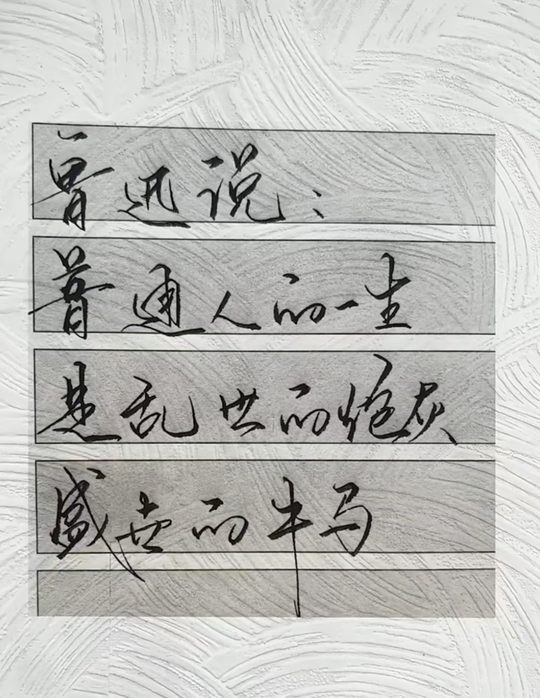 鲁迅说：
普通人的一生
是乱世的炮灰
盛世的牛马